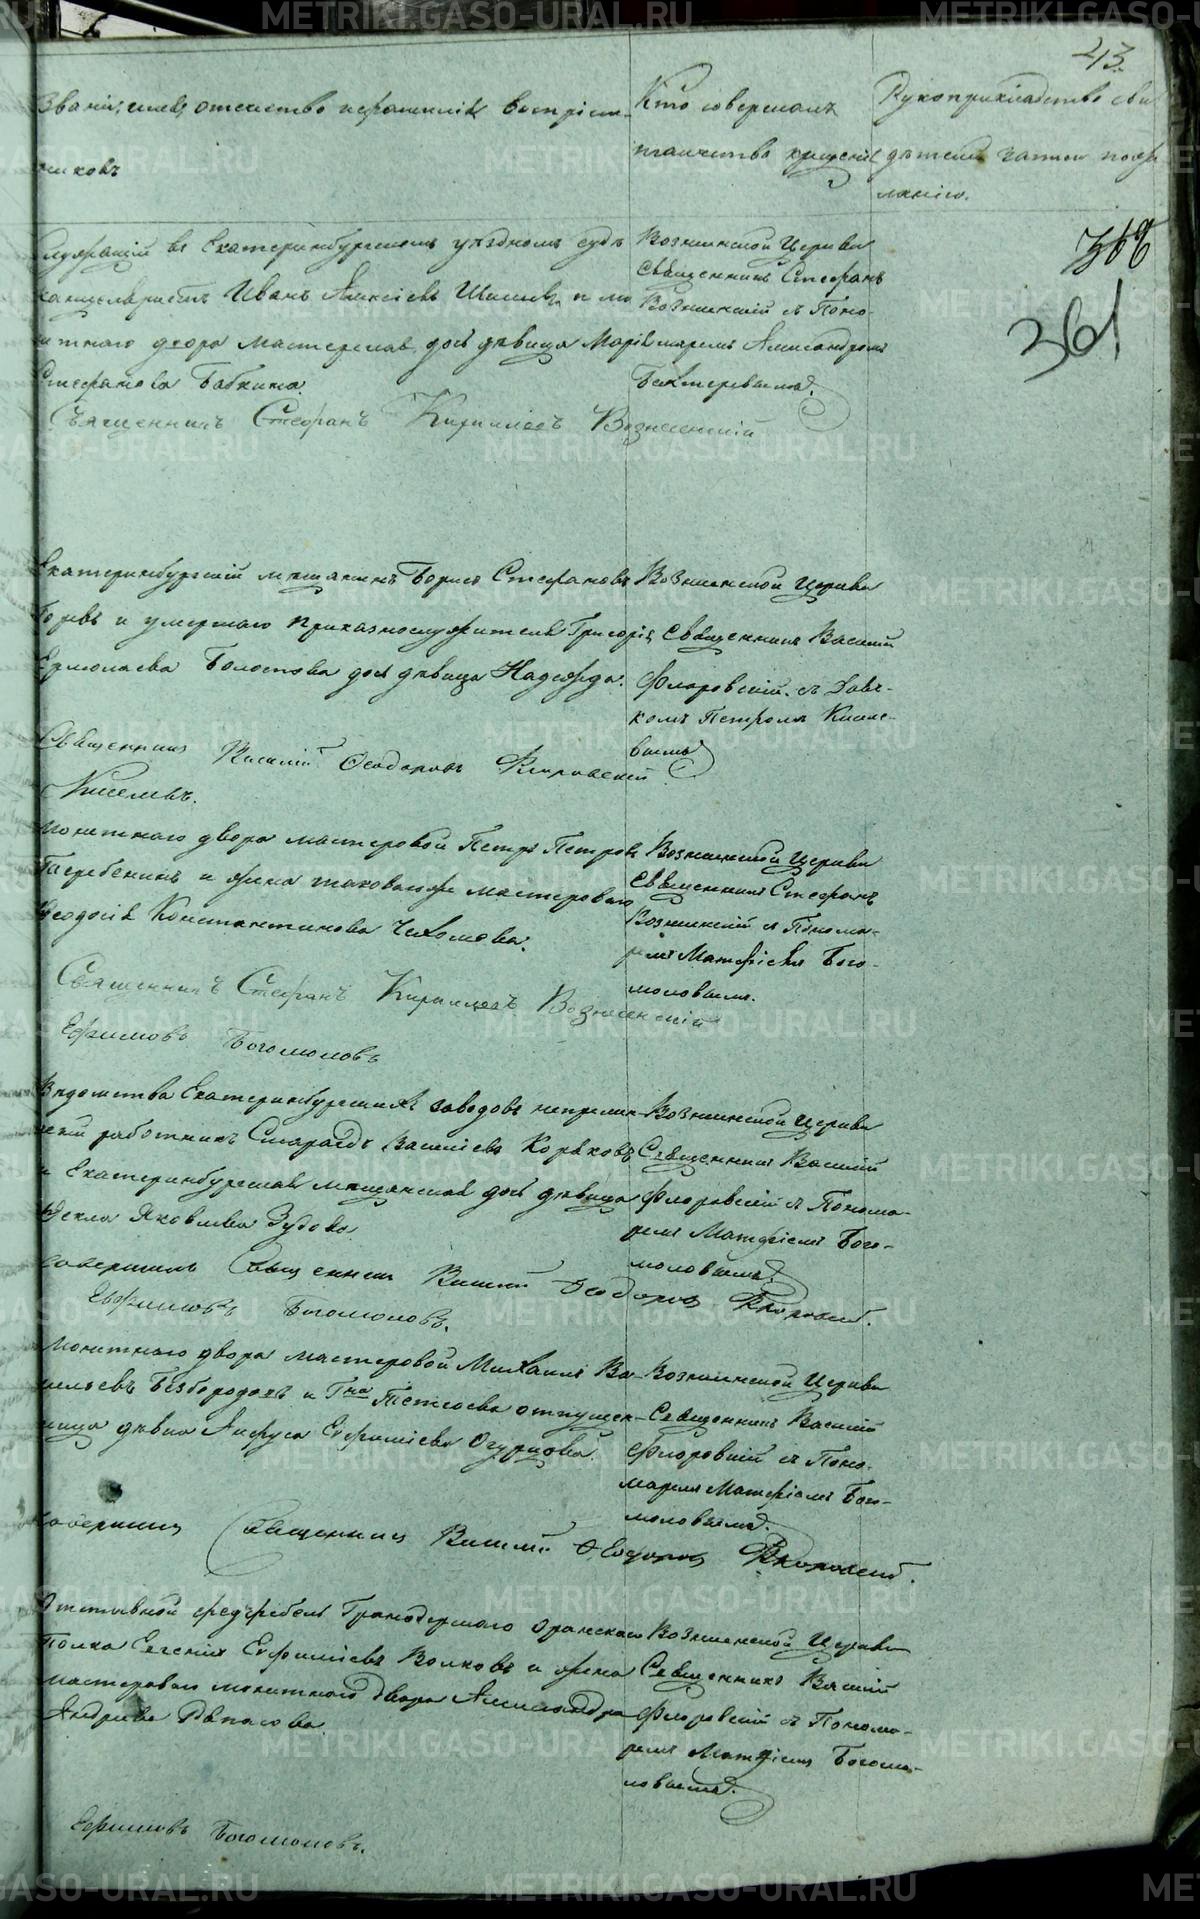 43.
Званіе, имя, отечество и фамилія воспріем-
никовъ
Кто совершалъ
таинство крещенія
Рукоприкладство сви
дѣтелей записи по жела
ланію.
Служащій въ Екатеринбургскомъ уѣздномъ судѣ
канцеляристъ Иванъ Алексѣевъ и мо
нетнаго двора мастерская дочь дѣвица Марія
Стефанова Бабкина.
Священникъ Стефанъ Кирилловъ Вознесенскій
Вознесенской Церкви
Священникъ Стефанъ
Вознесенскій съ Поно-
маремъ Александромъ
361
Екатеринбургскій мѣщанинъ Борисъ Стефановъ
и умершаго Приказнослужителя Григорія
Ермолаева Болотова дочь дѣвица Надежда.
Священникъ Василій Ѳеодоровъ Флоровскій
Киселевъ.
Вознесенской Церкви
Священникъ Василій
Флоровскій съ Дьяч-
комъ Петромъ Кисе-
левымъ
Монетнаго двора мастеровой Петръ Петровъ
и жена таковаго же мастероваго
Ѳеодосія Константинова
Священникъ Стефанъ Кирилловъ Вознесенскій
Ефимовъ Богомоловъ
Вознесенской Церкви
Священникъ Стефанъ
Вознесенскій съ Понома-
ремъ Матѳіемъ Бого-
моловымъ.
Вѣдомства Екатеринбургскихъ заводовъ непремѣн-
ный работникъ Смарагдъ Васильевъ Коряковъ
и Екатеринбургская мѣщанская дочь дѣвица
Ѳекла Яковлева Зубова
Совершилъ Священникъ Василій Ѳеодоровъ Флоровскій.
Ефимовъ Богомоловъ.
Вознесенской Церкви
Священникъ Василій
Флоровскій съ Понома-
ремъ Матѳіемъ Бого-
моловымъ.
Монетнаго двора мастеровой Михаилъ Ва-
сильевъ Безбородовъ и Гна отпущен-
ница дѣвка Анфуса Ефимьева Огурцова.
Совершилъ Священникъ Василій Ѳеодоровъ Флоровскій.
Вознесенской Церкви
Священникъ Василій
Флоровскій съ Поно-
маремъ Матѳіемъ Бого-
моловымъ.
Отставной фельдфебель Гранодерскаго
Полка Евгеній Ефимьевъ Волковъ и жена
мастероваго монетнаго двора Александра
Андреева
Ефимовъ Богомоловъ.
Вознесенской Церкви
Священникъ Василій
Флоровскій съ Понома-
ремъ Матѳіемъ Богомо-
ловымъ.
METRIKI.GASO-URAL.RU